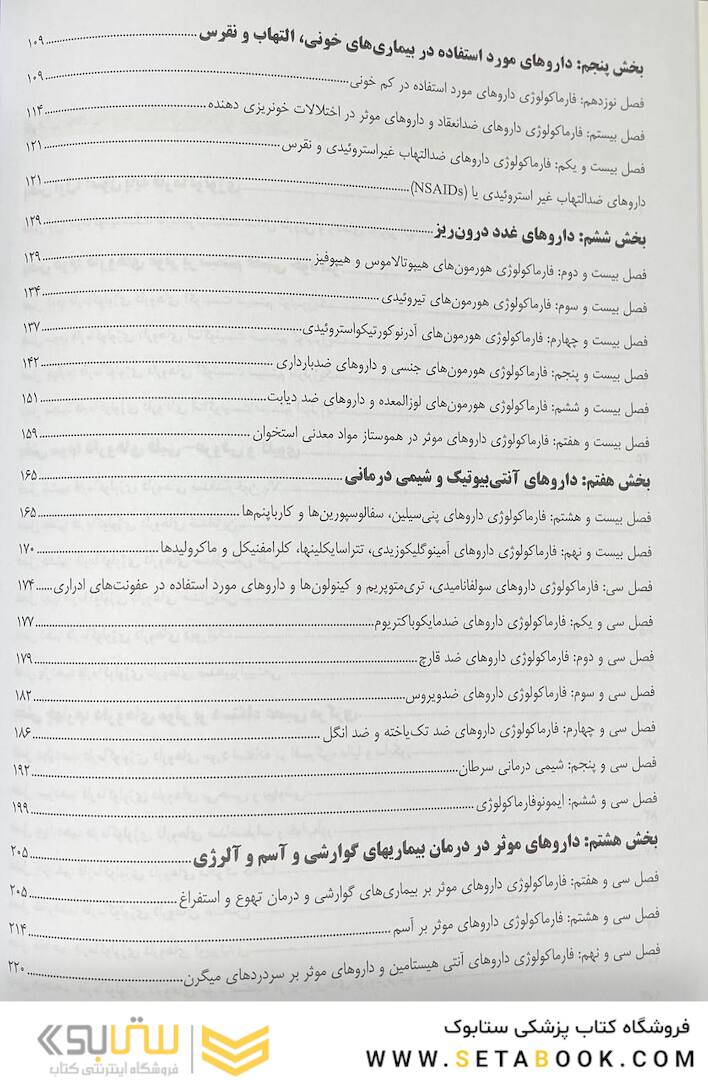 بخش پنجم: داروهای مورد استفاده در بیماری‌های خونی، التهاب و نقرس ۱۰۹
فصل نوزدهم: فارماکولوژی داروهای مورد استفاده در کم خونی ۱۰۹
فصل بیستم: فارماکولوژی داروهای ضدانعقاد و داروهای موثر در اختلالات خونریزی دهنده ۱۱۴
فصل بیست و یکم: فارماکولوژی داروهای ضدالتهاب غیراستروئیدی و نقرس ۱۲۱
داروهای ضدالتهاب غیر استروئیدی یا (NSAIDs) ۱۲۱
بخش ششم: داروهای غدد درون‌ریز ۱۲۹
فصل بیست و دوم: فارماکولوژی هورمون‌های هیپوتالاموس و هیپوفیز ۱۲۹
فصل بیست و سوم: فارماکولوژی هورمون‌های تیروئیدی ۱۳۴
فصل بیست و چهارم: فارماکولوژی هورمون‌های آدرنوکورتیکواستروئیدی ۱۳۷
فصل بیست و پنجم: فارماکولوژی هورمون‌های جنسی و داروهای ضدبارداری ۱۴۲
فصل بیست و ششم: فارماکولوژی هورمون‌های لوزالمعده و داروهای ضد دیابت ۱۵۱
فصل بیست و هفتم: فارماکولوژی داروهای موثر در هموستاز مواد معدنی استخوان ۱۵۹
بخش هفتم: داروهای آنتی‌بیوتیک و شیمی درمانی ۱۶۵
فصل بیست و هشتم: فارماکولوژی داروهای پنی‌سیلین، سفالوسپورین‌ها و کارباپنم‌ها ۱۶۵
فصل بیست و نهم: فارماکولوژی داروهای آمینوگلیکوزیدی، تتراسایکلینها، کلرامفنیکل و ماکرولیدها ۱۷۰
فصل سی: فارماکولوژی داروهای سولفانامیدی، تری‌متوپریم و کینولون‌ها و داروهای مورد استفاده در عفونت‌های ادراری ۱۷۴
فصل سی و یکم: فارماکولوژی داروهای ضدمایکوباکتریوم ۱۷۷
فصل سی و دوم: فارماکولوژی داروهای ضد قارچ ۱۷۹
فصل سی و سوم: فارماکولوژی داروهای ضدویروس ۱۸۲
فصل سی و چهارم: فارماکولوژی داروهای ضد تک‌یاخته و ضد انگل ۱۸۶
فصل سی و پنجم: شیمی درمانی سرطان ۱۹۲
فصل سی و ششم: ایمونوفارماکولوژی ۱۹۹
بخش هشتم: داروهای موثر در درمان بیماریهای گوارشی و آسم و آلرژی ۲۰۵
فصل سی و هفتم: فارماکولوژی داروهای موثر بر بیماری‌های گوارشی و درمان تهوع و استفراغ ۲۰۵
فصل سی و هشتم: فارماکولوژی داروهای موثر بر آسم ۲۱۴
فصل سی و نهم: فارماکولوژی داروهای آنتی هیستامین و داروهای موثر بر سردردهای میگرن ۲۲۰
فروشگاه کتاب پزشکی ستابوک
WWW.SETABOOK.COM
ستابوک
فروشگاه اینترنتی کتاب